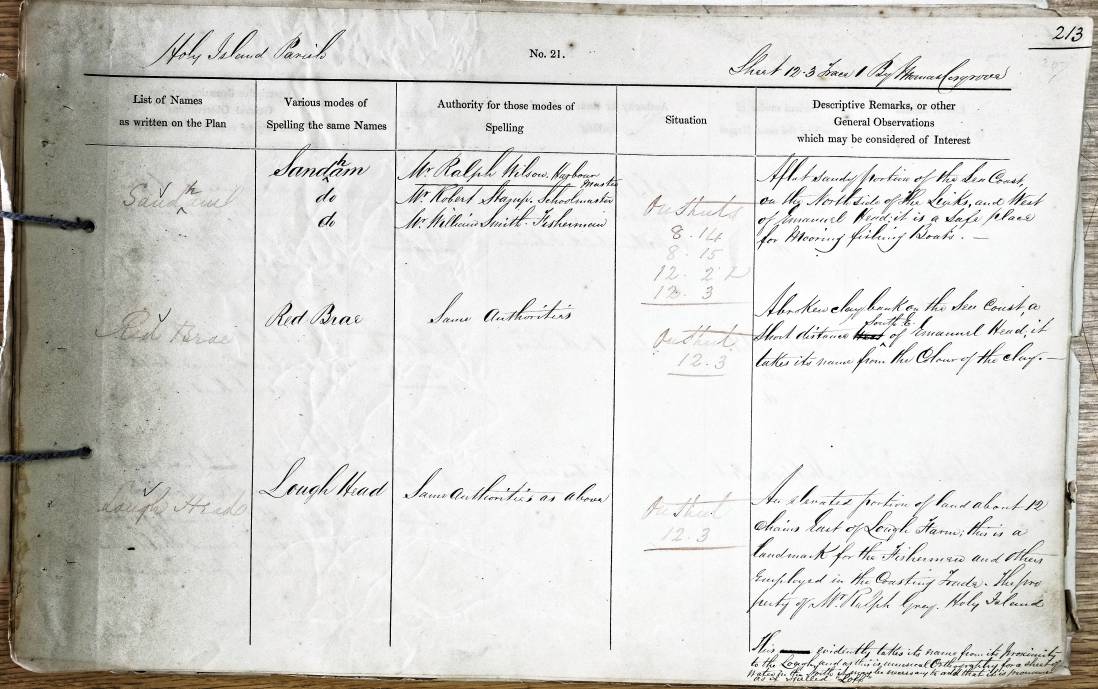 213
Holy Island Parish
No. 21.
Sheet 12.3 Trace 1 By Thomas Cosgrove
List of Names
as written on the Plan
Various modes of
Spelling the same Names
Authority for those modes of
Spelling
Situation
Descriptive Remarks, or other
General Observations
which may be considered of Interest
Sandham
Sandham
do
do
Mr Ralph Wilson. Harbour Master
Mr. Robert Stamp. Schoolmaster
Mr. William Smith. Fisherman
On Sheets
8.14
8.15
12.2
12.3
A flat sandy portion of the Sea Coast,
on the North side of the Links, and West
of Emanuel Head; it is a safe place
for Mooring fishing Boats. —
Red Brae
Red Brae
Same Authorities
On Sheet
12.3
A broken clay bank on the Sea Coast, a
short distance South E. of Emanuel Head; it
takes its name from the Colour of the clay. —
Lough Head
Lough Head
Same Authorities as above
On Sheet
12.3
An elevated portion of land about 12
chains East of Lough Farm; this is a
landmark for the Fishermen and others
employed in the Coasting Trade. The pro
perty of Mr. Ralph Grey. Holy Island
This evidently takes its name from its proximity
to the Lough, and as this is unusual Orthography for a sheet of
Water in the North it may be necessary to add that it is
as if spelled "Loff"